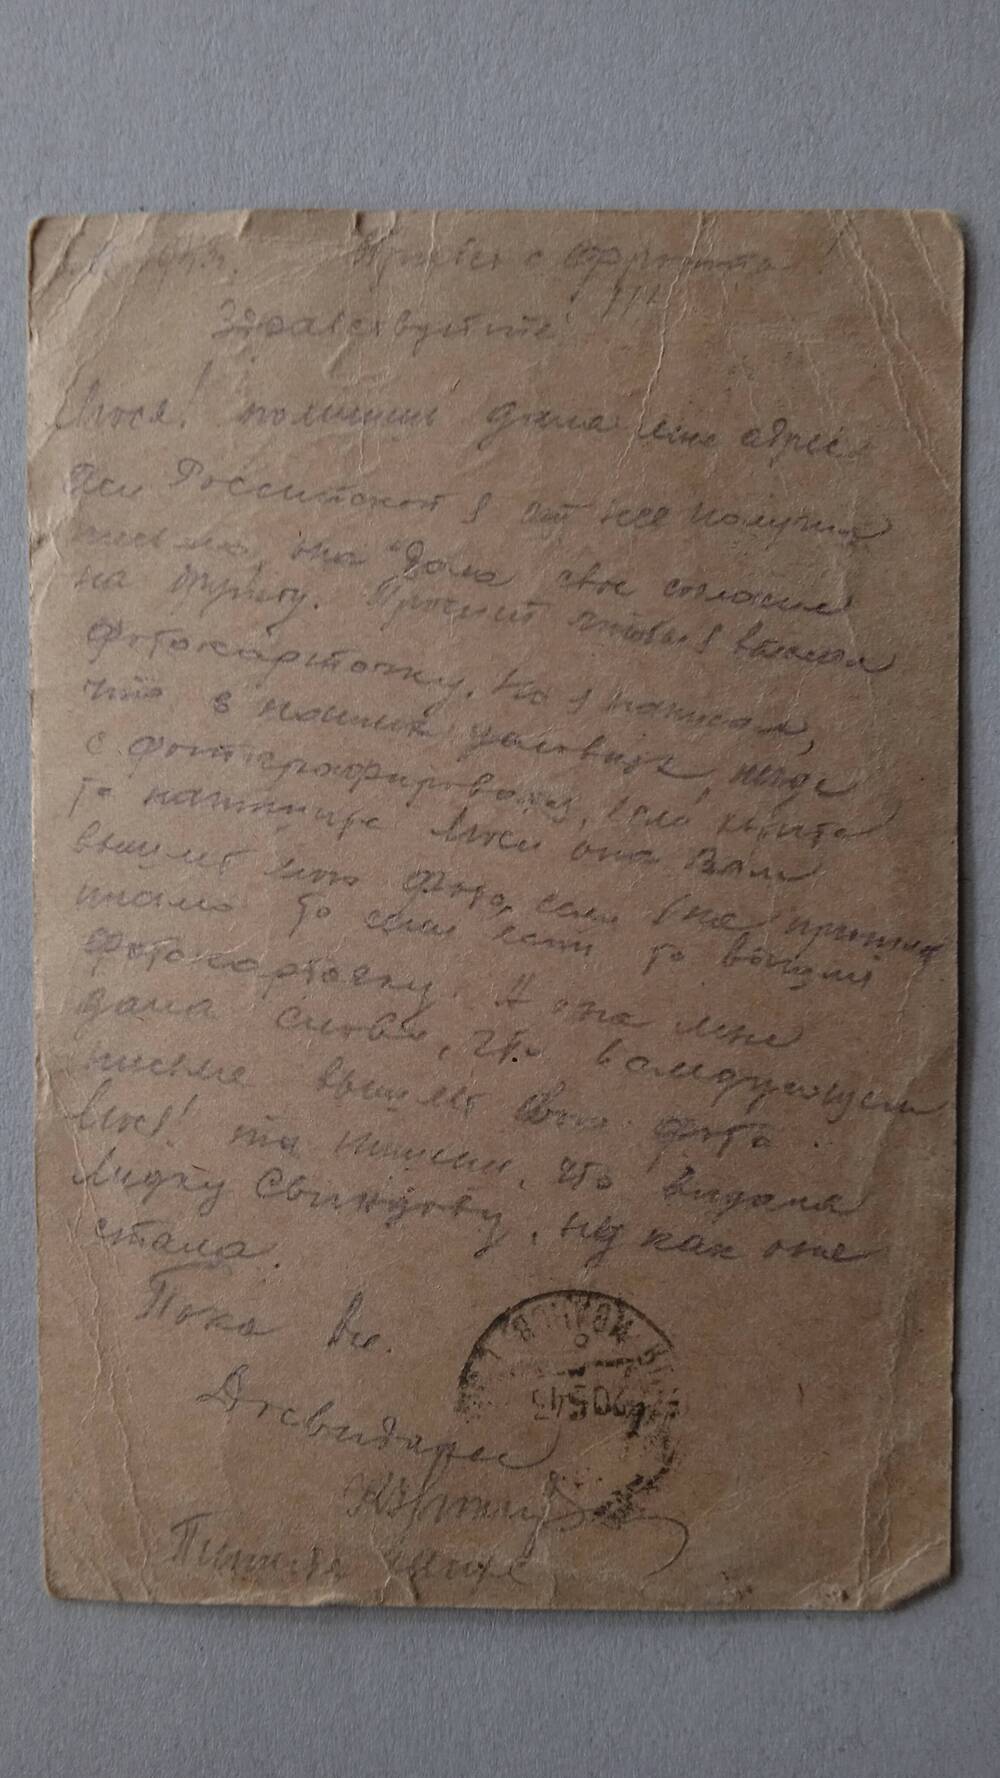 Привет с фронта!
Здравствуйте
Люся! помнишь дала мне адрес
Российской я от нее получил
письмо, она дала свое согласие
на дружбу. Просит чтобы я выслал
фотокарточку. Но я написал,
что в наших условиях, негде
с фотографироваться, если хотите
то напишите Люси она Вам
вышлет мою фото, если она пришла
то вышли
фотокарточку. А она мне
дала слово, что в следующем
письме вышлет свою фото.
Люся! ты пишешь, что видала
Лидку Свинцову, ну как она
стала.
Пока Все.
Досвидание
Пишите чаще